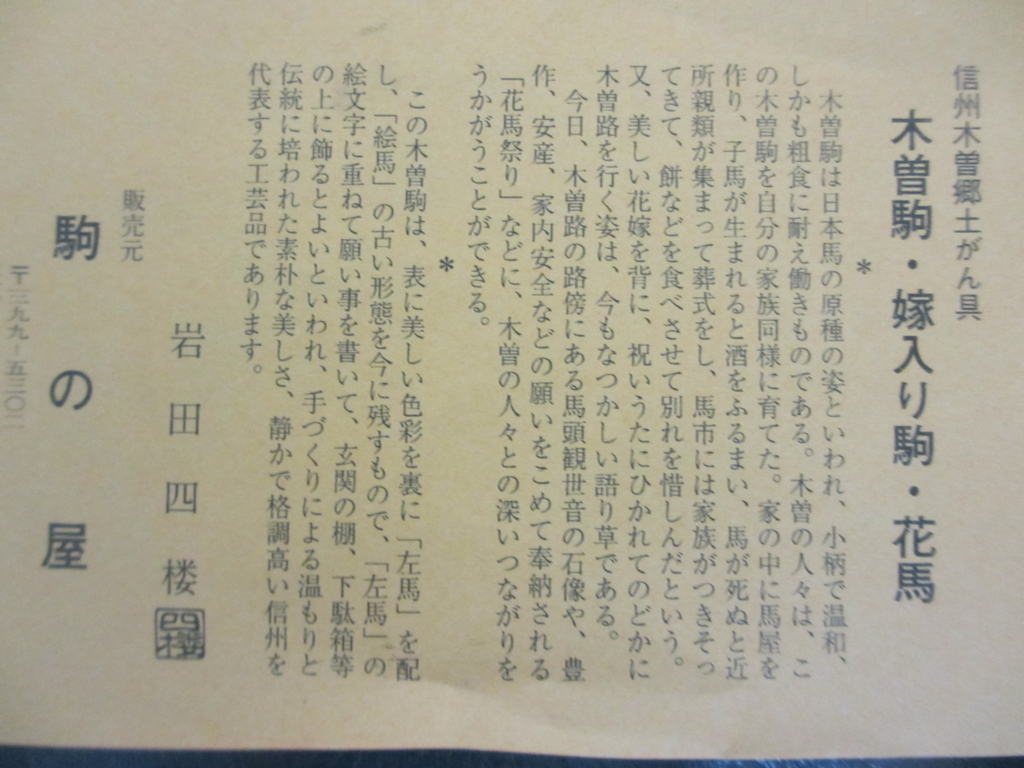 信州木曽郷土がん具
木曽駒・嫁入り駒・花馬
*
木曽駒は日本馬の原種の姿といわれ、小柄で温和、
しかも粗食に耐え働きものである。木曽の人々は、こ
の木曽駒を自分の家族同様に育てた。家の中に馬屋を
作り、子馬が生まれると酒をふるまい、馬が死ぬと近
所親類が集まって葬式をし、馬市には家族がつきそっ
てきて、餅などを食べさせて別れを惜しんだという。
又、美しい花嫁を背に、祝いうたにひかれてのどかに
木曽路を行く姿は、今もなつかしい語り草である。
今日、木曽路の路傍にある馬頭観世音の石像や、豊
作、安産、家内安全などの願いをこめて奉納される
「花馬祭り」などに、木曽の人々との深いつながりを
うかがうことができる。
*
この木曽駒は、表に美しい色彩を裏に「左馬」を配
し、「絵馬」の古い形態を今に残すもので、「左馬」の
絵文字に重ねて願い事を書いて、玄関の棚、下駄箱等
の上に飾るとよいといわれ、手づくりによる温もりと
伝統に培われた素朴な美しさ、静かで格調高い信州を
代表する工芸品であります。
岩田四楼
販売元
駒の屋
〒三九九-五三〇二